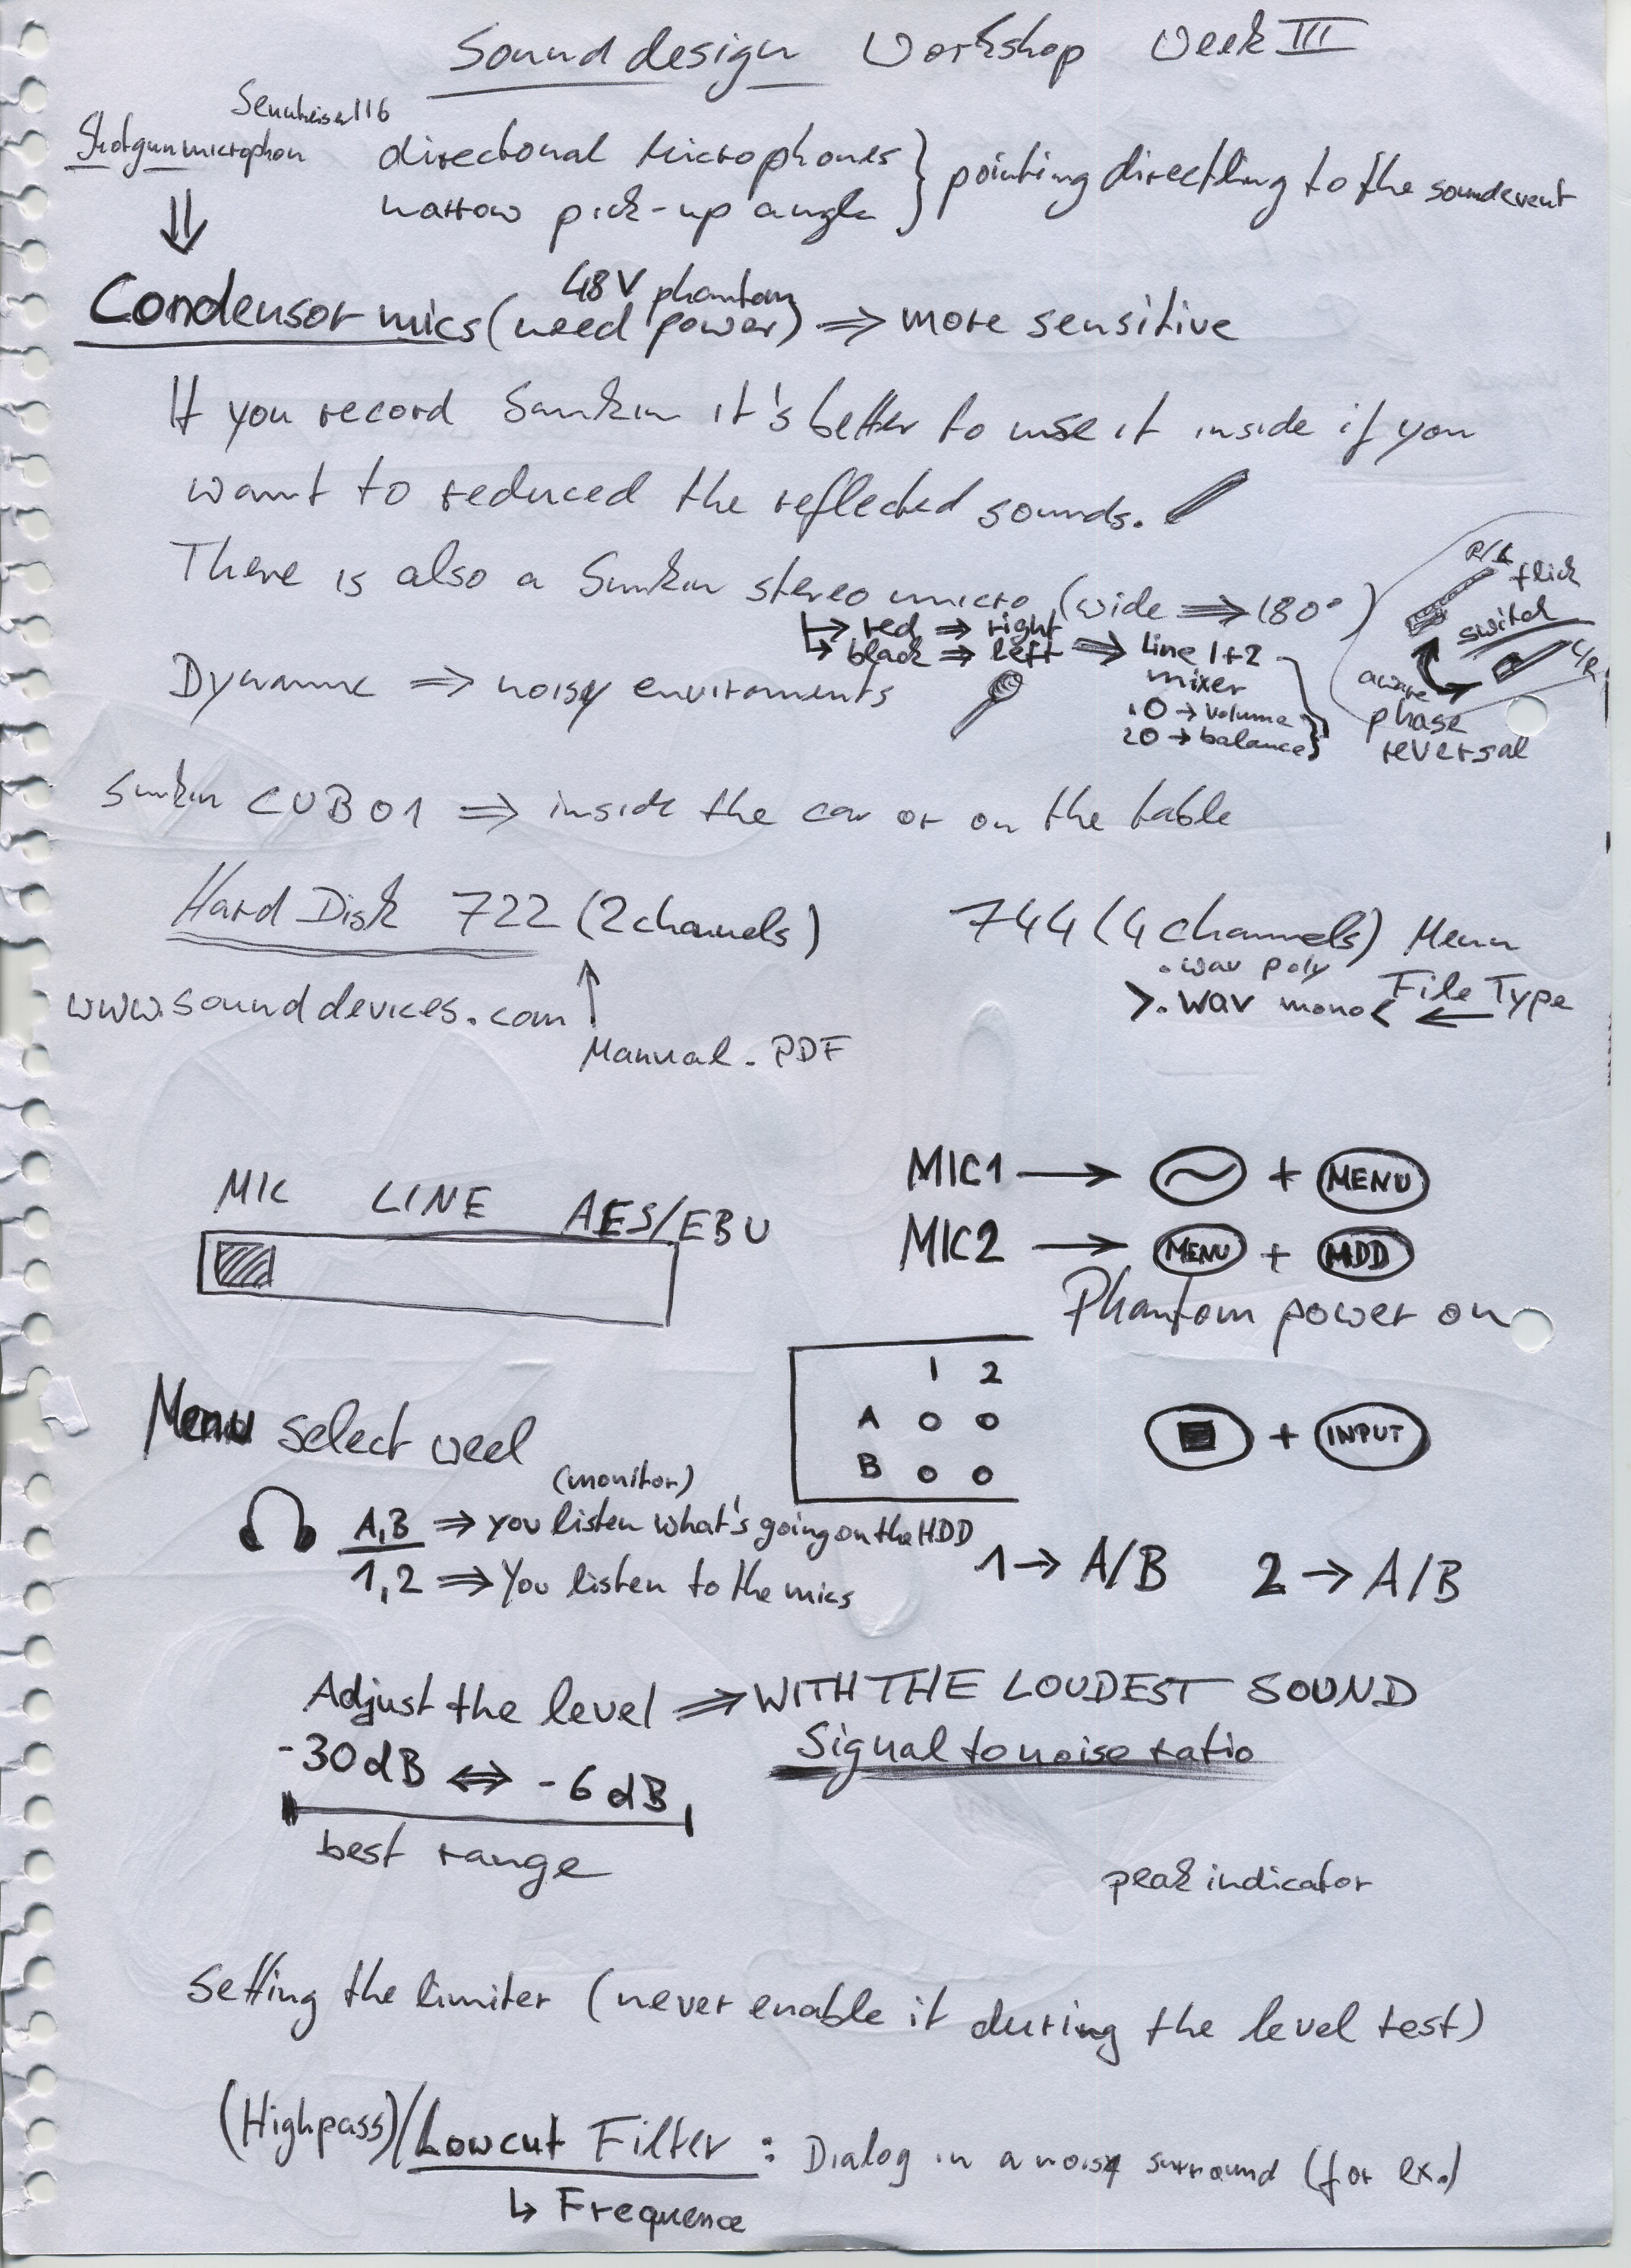 Sound design Workshop Week III
Sennheiser 116
Shotgun microphon
directional Microphones
narrow pick-up angle
pointing directling to the soundevent
Condensor mics (need power) ⇒ more sensitive
48V phantom
If you record Sankin it's better to use it inside if you
want to reduced the reflected sounds.
There is also a Sankin stereo micro (wide ⇒ 180°)
↳ red ⇒ right
↳ black ⇒ left ⇒ Line 1+2
mixer
10 → volume
20 → balance
R/L
flick
switch
L/R
aware
phase
reversal
Dynamic ⇒ noisy enviroments
Sankin CUB 01 ⇒ inside the car or on the table
Hard Disk 722 (2 channels)
744 (4 channels) Menu
.wav poly
File Type
>.wav mono< ←
www.sounddevices.com
↑
Manual.PDF
MIC LINE AES/EBU
MIC1 → ~ + MENU
MIC2 → MENU + HDD
Phantom power on
1 2
A o o
B o o
■ + INPUT
Menu select weel
(monitor)
A,B ⇒ you listen what's going on the HDD
1,2 ⇒ You listen to the mics
1 → A/B 2 → A/B
Adjust the level ⇒ WITH THE LOUDEST SOUND
Signal to noise ratio
-30 dB ⇔ -6 dB
best range
peak indicator
Setting the limiter (never enable it during the level test)
(Highpass)/Lowcut Filter : Dialog in a noisy surround (for ex.)
↳ Frequence